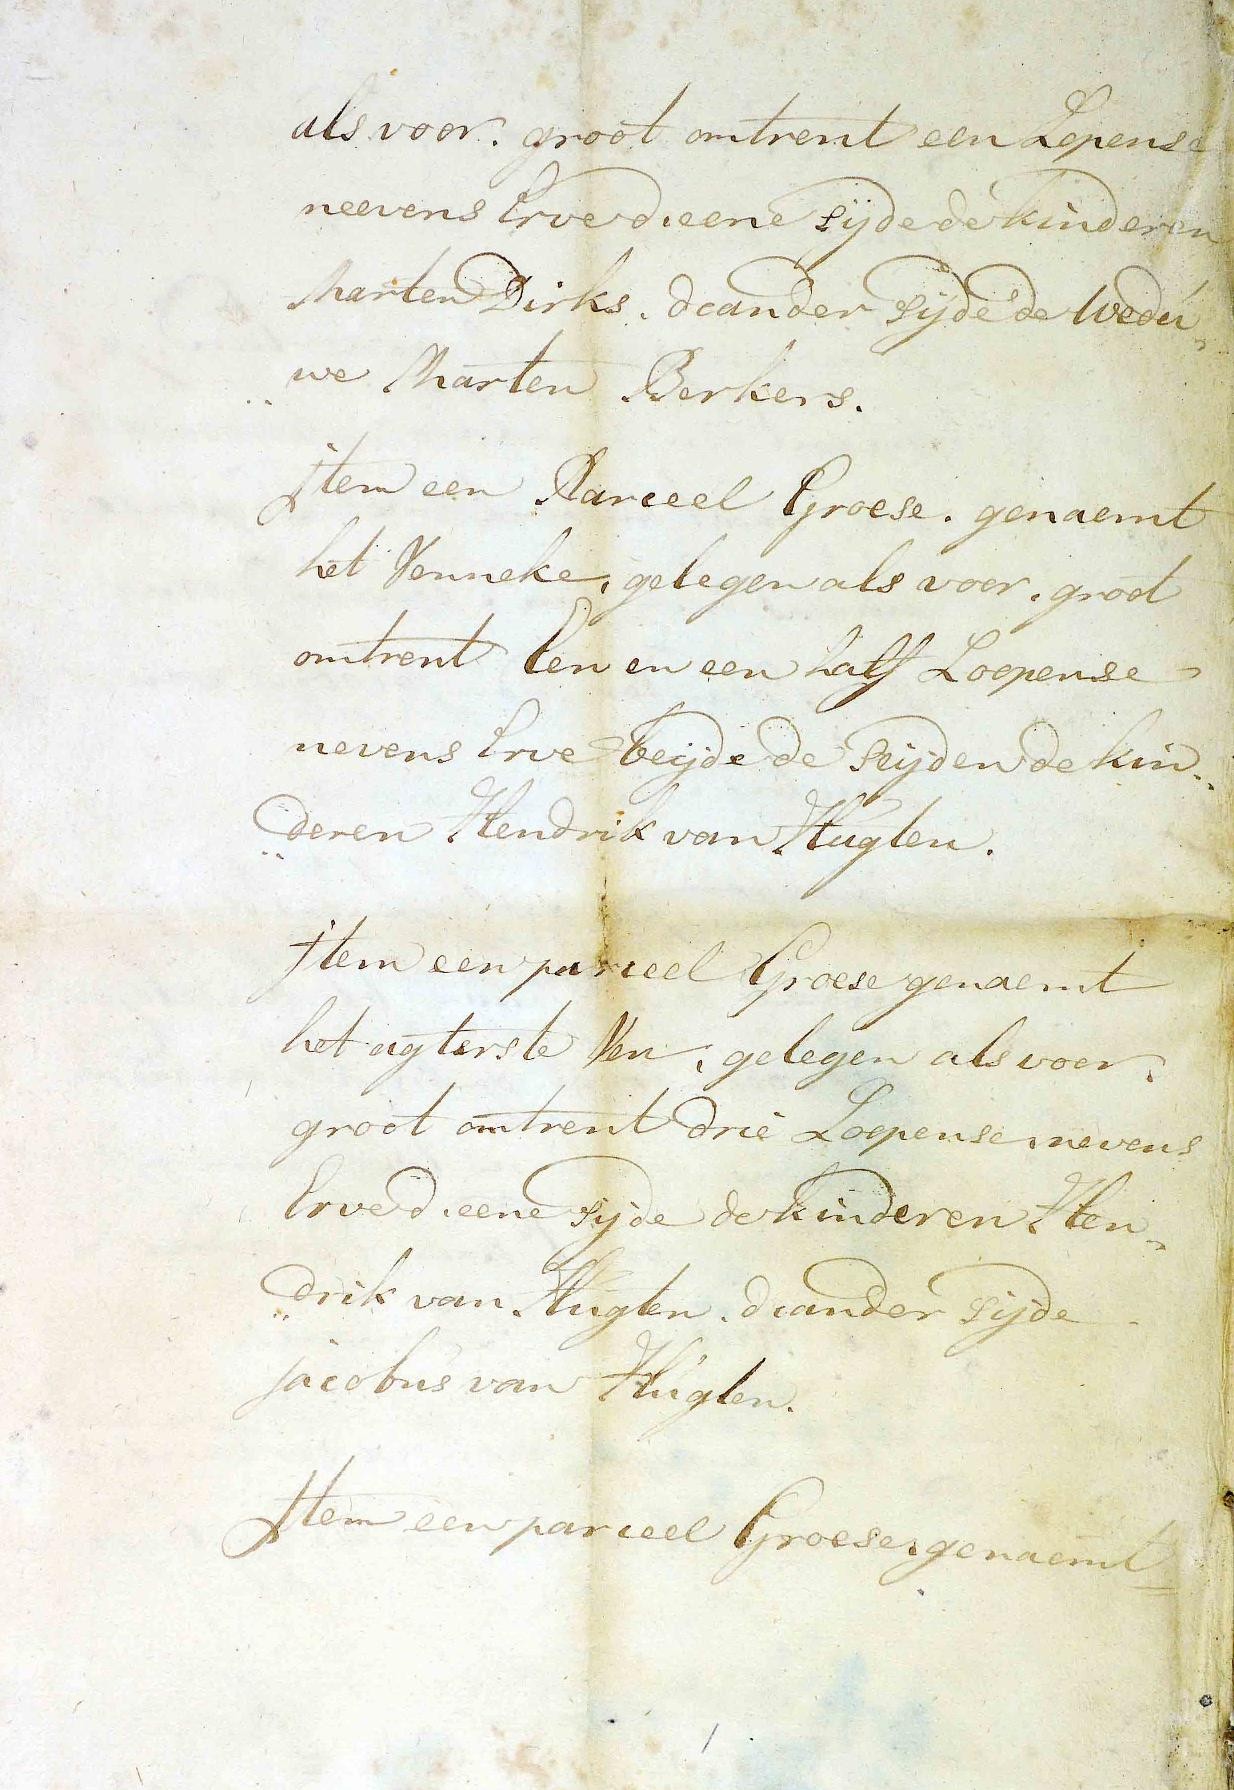 als voor. groot omtrent een Lopense
neevens Erve d'eene sijde de kinderen
Marten Dirks. d'eander sijde de Wedu„
„we Marten Berkers.
Item een Parceel Groese. genaemt
het Venneke, gelegen als voor. groot
omtrent Een en een half Loopense
nevens Erve beijde de seijden de kin„
„deren Hendrik van Hugten.
Item een parceel Groese genaemt
het agterste Ven, gelegen als voor,
groot omtrent drie Loopense nevens
Erve d'eene sijde de kinderen Hen„
„drik van Hugten. d'eander sijde
jacobus van Hugten.
Item een parceel Groese, genaemt